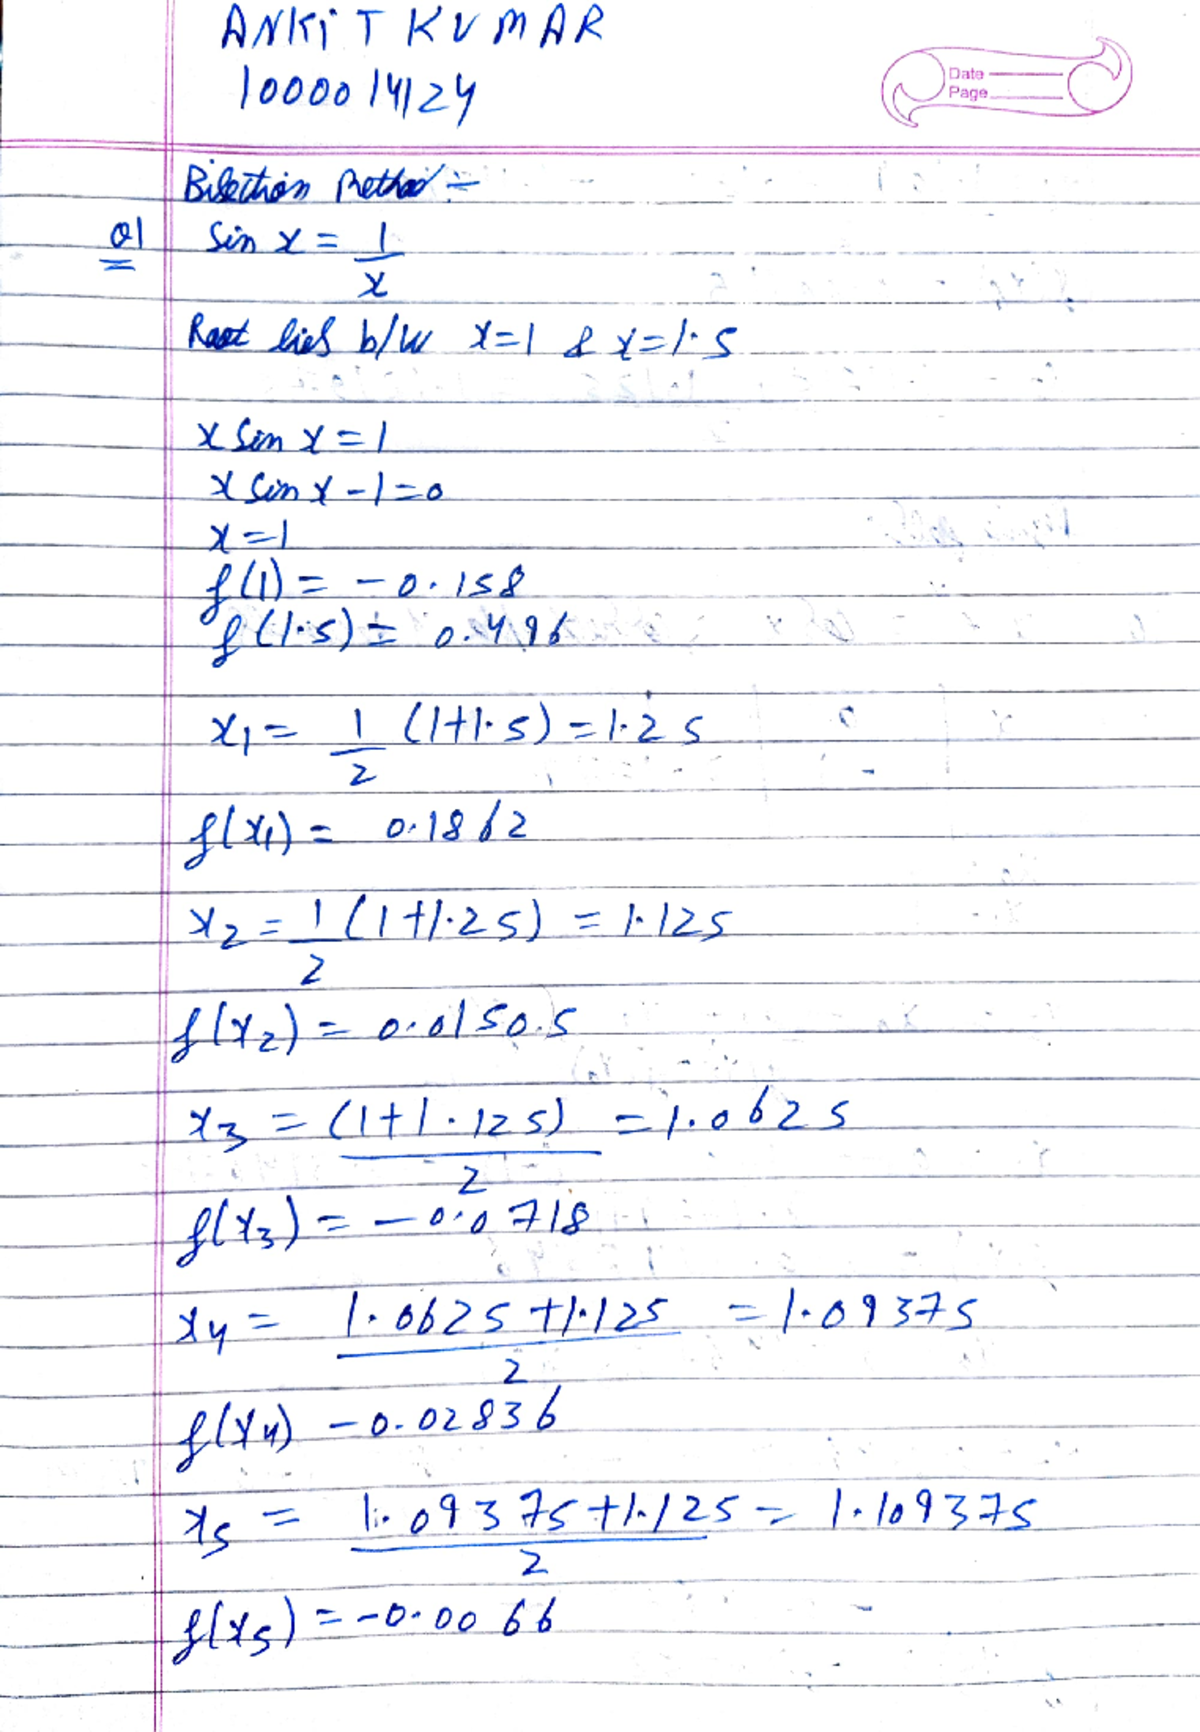 ANKIT KUMAR
1000014124
Date
Page
Bisection Method :-
Q1 Sin x = 1/x
Root lies b/w x=1 & x=1.5
x Sin x = 1
x Sin x - 1 = 0
x = 1
f(1) = -0.158
f(1.5) = 0.496
x1 = 1/2 (1+1.5) = 1.25
f(x1) = 0.1862
x2 = 1/2 (1+1.25) = 1.125
f(x2) = 0.0150.5
x3 = (1+1.125)/2 = 1.0625
f(x3) = -0.0718
x4 = 1.0625+1.125/2 = 1.09375
f(x4) -0.02836
x5 = 1.09375+1.125/2 = 1.109375
f(x5) = -0.0066